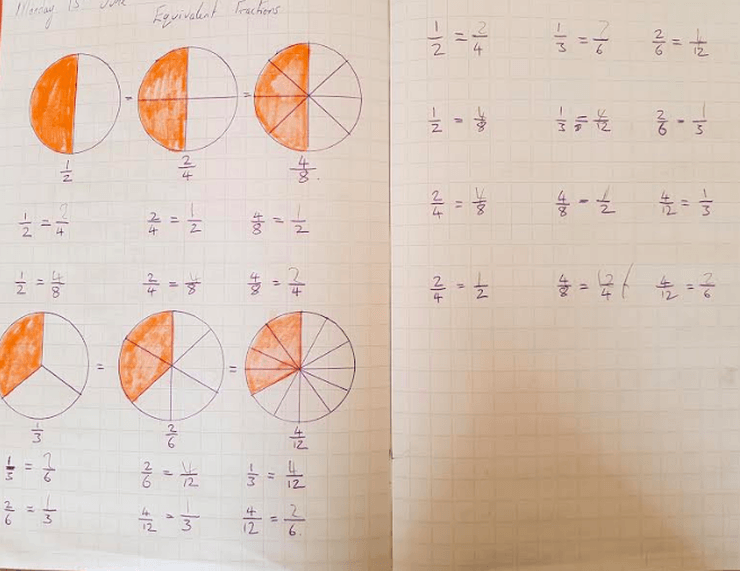 Monday 15 June
Equivalent Fractions
= =
1/2 2/4 4/8.
1/2 = 2/4 2/4 = 1/2 4/8 = 1/2
1/2 = 4/8 2/4 = 4/8 4/8 = 2/4
= =
1/3 2/6 4/12
1/3 = 2/6 2/6 = 4/12 1/3 = 4/12
2/6 = 1/3 4/12 = 1/3 4/12 = 2/6.
1/2 = 2/4 1/3 = 2/6 2/6 = 1/12
1/2 = 4/8 1/3 = 4/12 2/6 = 1/3
2/4 = 4/8 4/8 = 1/2 4/12 = 1/3
2/4 = 1/2 4/8 = 2/4 4/12 = 2/6